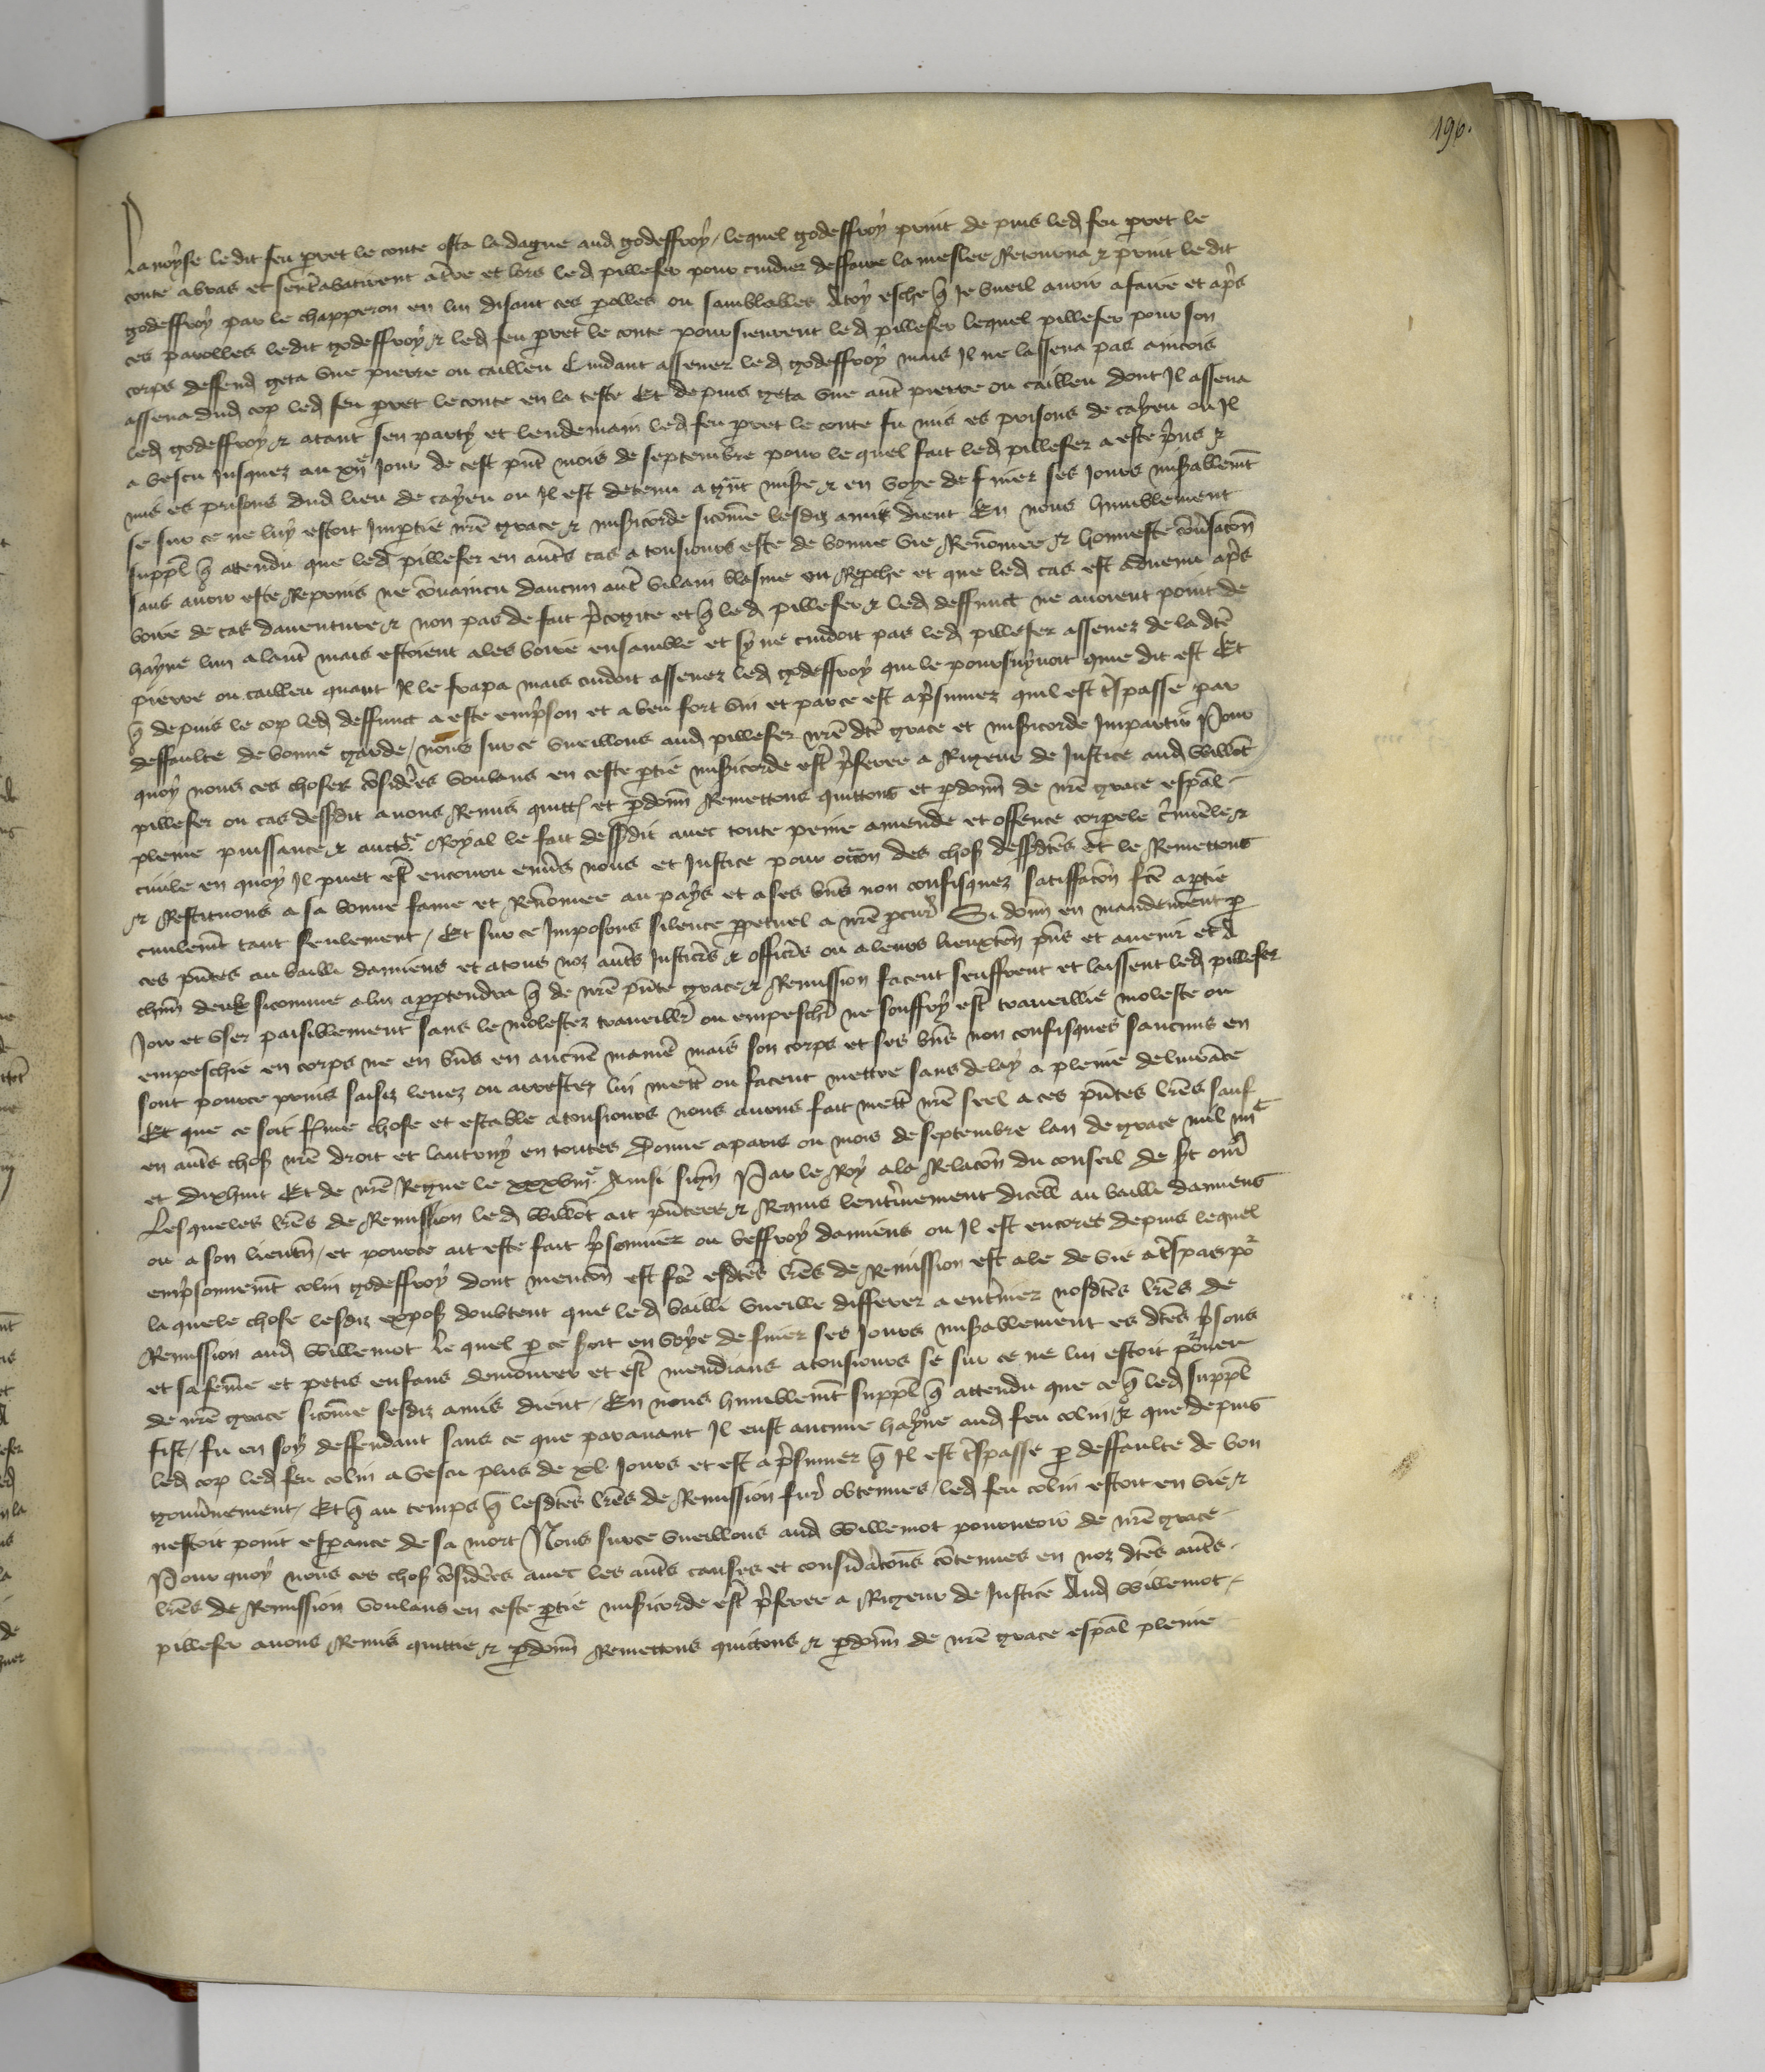 196.
La noyse ledit feu p̱ret le conte osta la dague aud godeffroy / lequel godeffroy print de puis led feu p̱ret le
conte a bras et sentrabatirent a t̄re et lors led pillefer pour cuidier deffaire la meslee Retourna & print ledit
godeffroy par le chapperon en lui disant ces p̱olles ou samblables A toy esche q̄ Je vueil avoir a faire et ap̄s
ces parolles ledit godeffroy & led feu p̱ret le conte poursieurent led pillefer lequel pillefer pour son
corps deffend geta une pierre ou caillou Cuidant assener led godeffroy mais Il ne lassena pas aincois
assena dud cop led feu p̱ret le conte en la teste Et depuis geta une aut̄ pierre ou caillou dont Il assena
led godeffroy & atant sen party et lendemain led feu p̱ret le conte fu mis es prisons de cayeu ou Il
a vescu Jusquez au xij͛ Jour de cest p̄nt mois de septembre pour le quel fait led pillefer a este p̄ns &
mis es prisons dud lieu de cayeu ou Il est detenu a g̃nt mis̄e & en voye de finer ses Jours mis̄ablem̄t
se sur ce ne luy estoit Imp̱tie n̄re grace & mis̄icorde sicom̄e lesdiz amis dient En nous humblement
suppl q̄ attendu que led pillefer en aut̄s cas a tousiours este de bonne vie Renōmee & honneste cōv̄sacōn
sans avoir este Repris ne cōvaincu daucun aut̄ vilain blasme ou Rep̱che et que led cas est advenu ap̄s
boire de cas daventure & non pas de fait p̄cogite et q̄ led pillefer & led deffunct ne avoient point de
hayne lun a laut̄ mais estoient ales boire ensamble et sy ne cuidoit pas led pillefer assener de la dt̄e
pierre ou caillou quant Il le frapa mais cuidoit assener led godeffroy qui le poursuyvoit q̄me dit est Et
q̄ depuis le cop led deffunct a este emp̄son et a beu fort vin et par ce est a p̄sumer quil est t̄spasse par
deffaulte de bonne garde / nous sur ce vueillons aud pillefer n̄re dt̄e grace et mis̄icorde Impartir Pour
quoy nous ces choses cōsid̄ees voulans en ceste p̱tie mis̄icorde est̄ p̄feree a Rigeur de Justice aud Willot
pillefer ou cas dess̄dit avons Remis quitt̄ et p̱donn̄ Remettons quittons et p̱donn̄ de n̄re grace esp̄al
pleine puissance & auctō͛e Royal le fait dess̄dit avec toute peine amende et offence corp̱ele c̄iminele &
civile en quoy Il puet est̄ encouru env̄s nous et Justice pour occōn des chos̄ dess̄dt̄es et le Remettons
& Restituons a sa bonne fame et Renōmee au pays et a ses bn̄s non confisquez satiffacōn fc̄e a p̱tie
civilem̄t tant seulement / Et sur ce Imposons silence p̱petuel a n̄re p̱cur̄ Si donn̄ en mandement p̱
ces p̄ntes au bailli damiens et a tous noz aut̄s Justic̄rs & offic̄rs ou a leurs lieuxten̄ p̄ns et avenir et A
chm̄ deulx sicomme a lui app̱tendra q̄ de n̄re p̄nte grace & Remission facent seuffrent et laissent led pillefer
Joir et user paisiblement sans le molester traveill̄ ou empesch̄ ne souffrir est̄ traveillie moleste ou
empeschie en corps ne en bn̄s en aucune man̄ie mais son corps et ses bn̄s non confisques saucuns en
sont pource prins saisiz levez ou arrestez lui mett̄ ou facent mettre sans delay a pleine delivrāce
Et que ce soit f̄me chose et estable a tousiours nous avons fait mett̄ n̄re seel a ces p̄ntes lr̄es sauf
en aut̄s chos̄ n̄re droit et lautruy en toutes Donne a paris ou mois de septembre lan de grace mil iiij͛c
et dixhuit Et de n̄re Regne le xxxviij͛e Ainsi sign̄ Par le Roy a la Relacōn du conseil De s̄t om̄
Lesqueles lr̄es de Remission led Willot ait p̄ntees & Requis lent̄inement dicelles au bailli damiens
ou a son lieuten̄ / et pource ait este fait p̄sonnier ou beffroy damiens ou Il est encores depuis lequel
emp̄sonnem̄t colin godeffroy dont mencōn est fc̄e esdt̄es lr̄es de Remission est ale de vie a t̄spas po͛
laquele chose lesdiz expos̄ doubtent que led bailli vueille differer a ent̄iner nosdt̄es lr̄es de
Remission aud Willemot Le quel p̱ ce s̄oit en voye de finer ses Jours mis̄ablement es dt̄es p̄sons
et sa fem̄e et petis enfans demourer et est̄ mendians a tousiours se sur ce ne lui estoit po͛veu
de n̄re grace sicom̄e sesdiz amis dient / En nous humblem̄t suppl q̄ attendu que ce q̄ led suppl
fist / fu en soy deffendant sans ce que paravant Il eust aucune hayne aud feu colin / & que depuis
led cop led feu colin a vescu plus de xl Jours et est a p̄sumer q̄ Il est t̄spasse p̱ deffaulte de bon
gouv̄nement / Et q̄ au temps q̄ lesdt̄es lr̄es de Remission fur̄ obtenues / led feu colin estoit en vie &
nestoit point esp̱ance de sa mort Nous sur ce vueillons aud Willemot pourveoir de n̄re grace
Pour quoy nous ces chos̄ cōsid̄ees avec les aut̄s causes et considerac̄ons cōtenues en noz dt̄es aut̄s
lr̄es de Remission voulans en ceste p̱tie mis̄icorde est̄ p̄feree a Rigeur de Justice Aud Willemot
pillefer avons Remis quittie & p̱donn̄ Remettons quictons & p̱donn̄ de n̄re grace esp̄al pleine